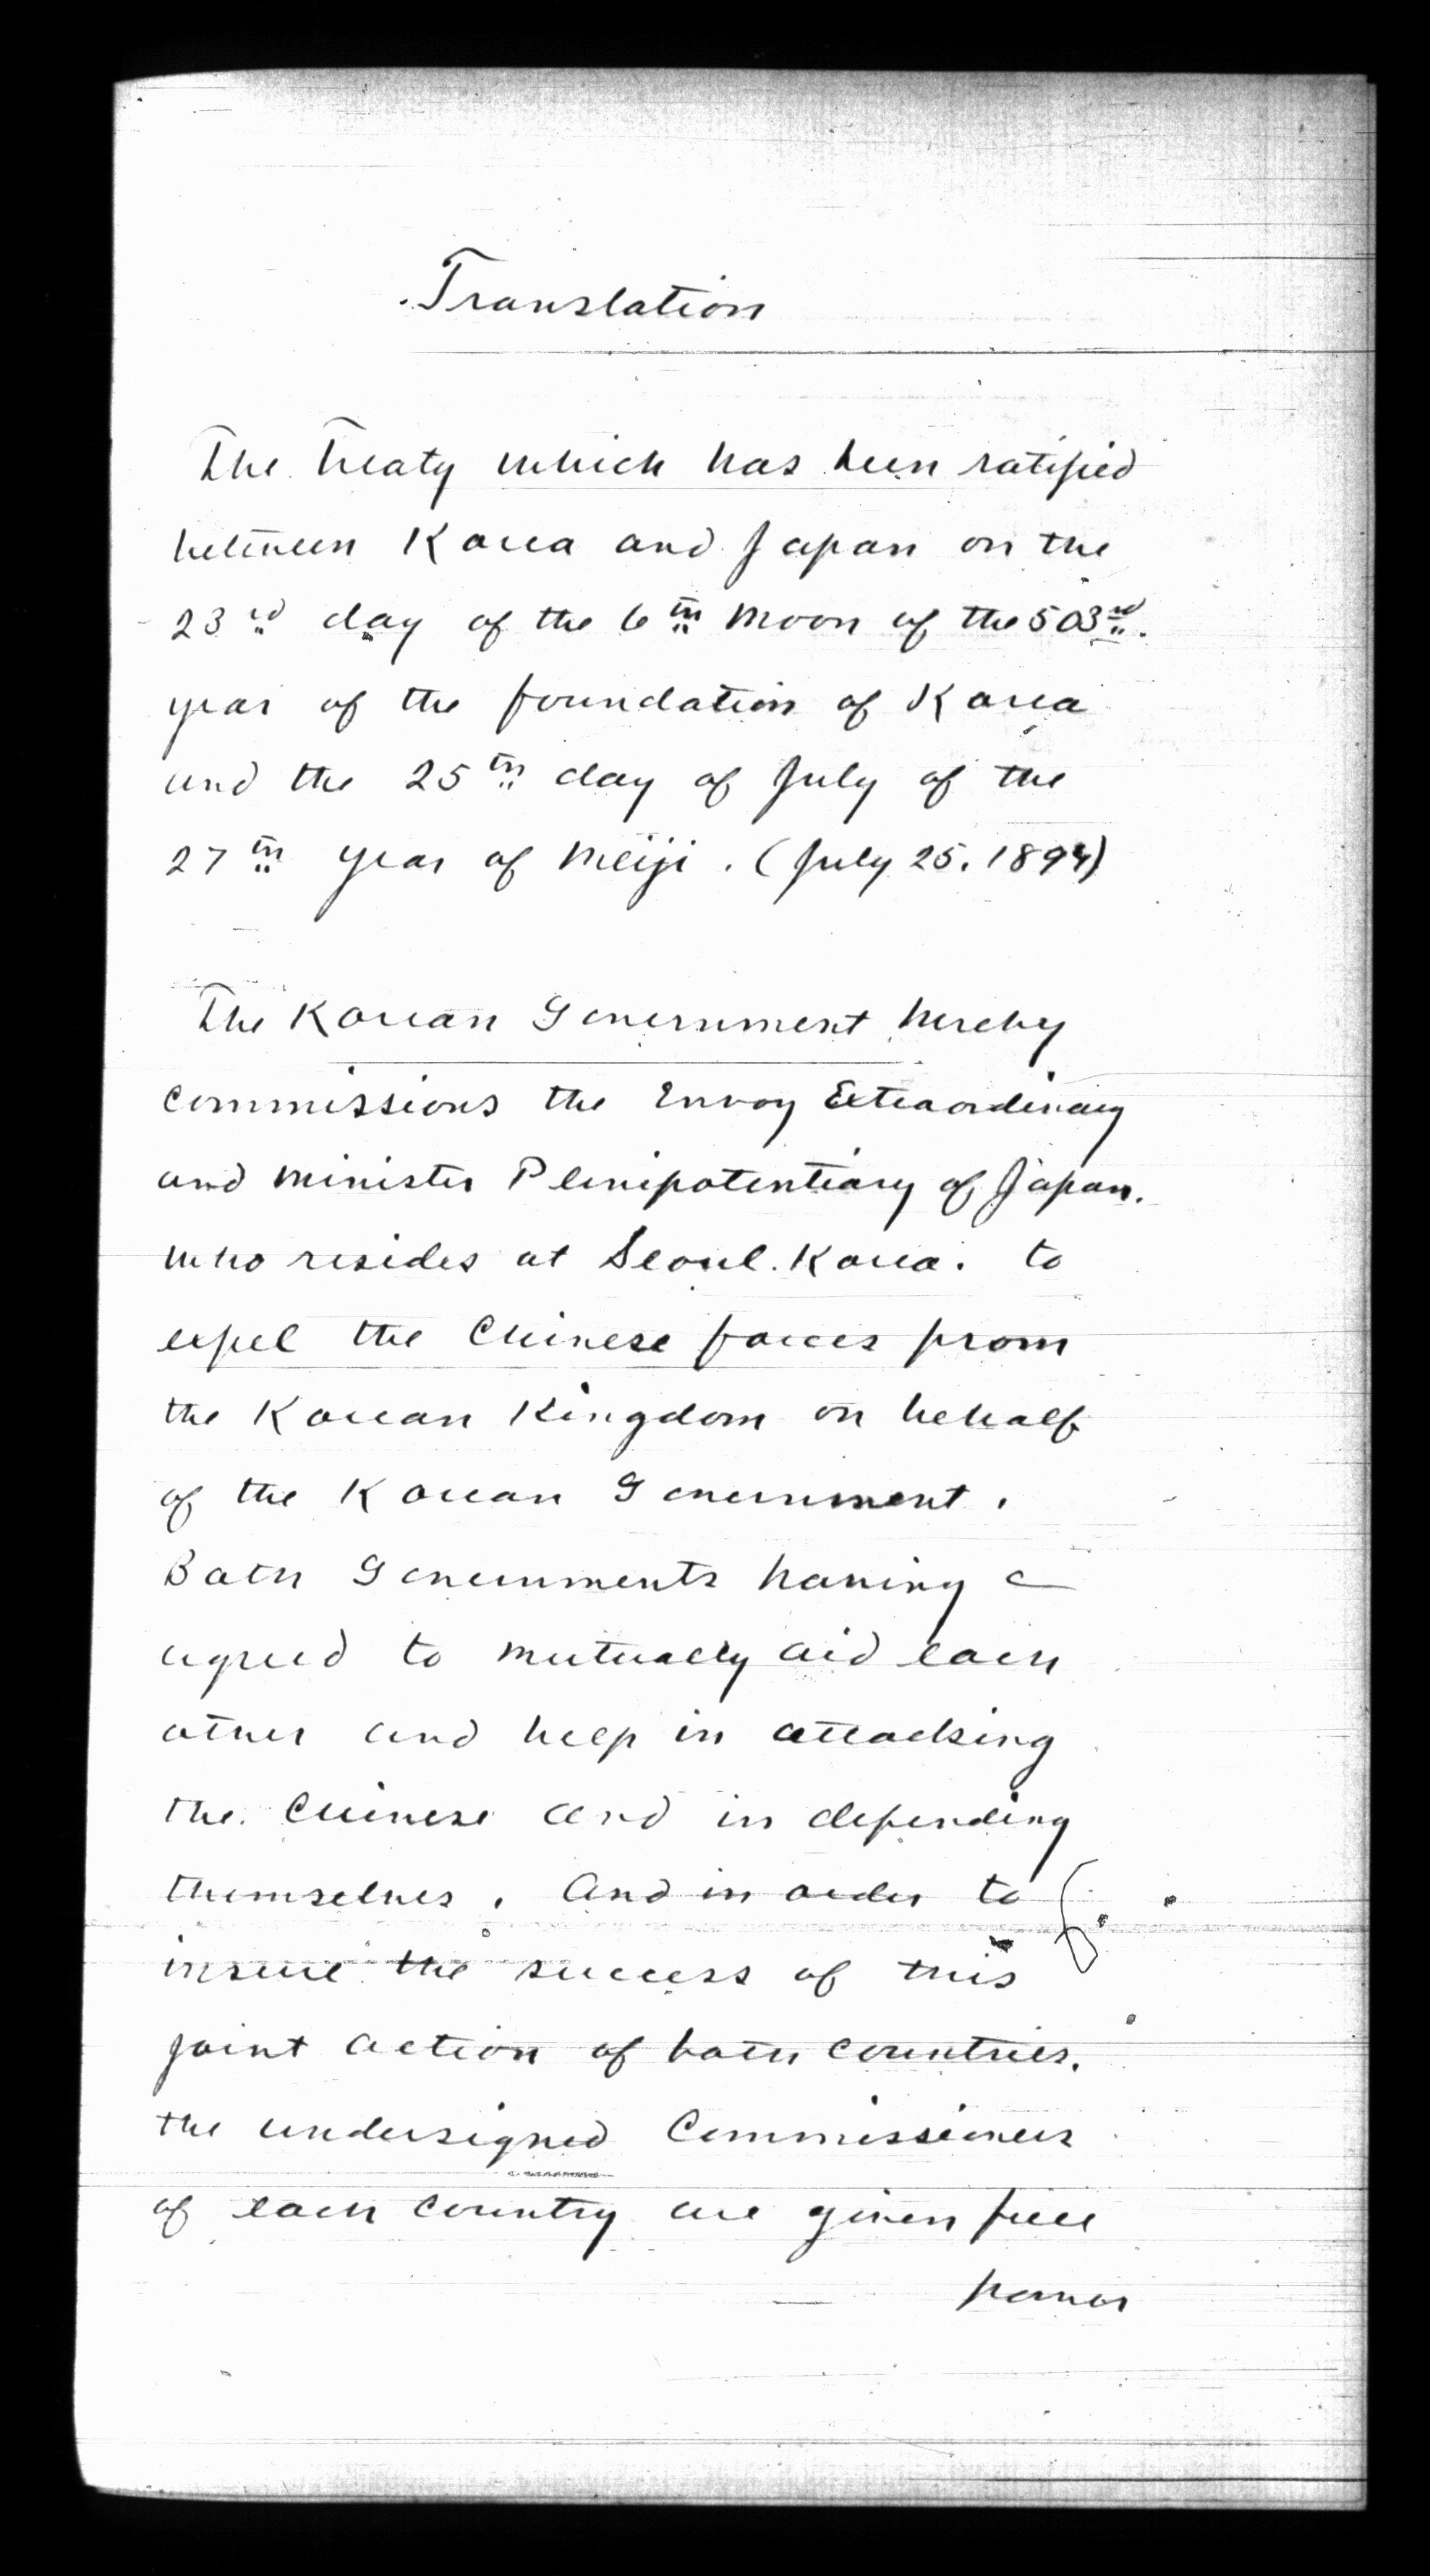 Translation
The Treaty which has been ratified
between Korea and Japan on the
23rd day of the 6th Moon of the 503rd.
year of the foundation of Korea
and the 25th day of July of the
27th year of Meiji. (July 25. 1894)
The Korean Government hereby
commissions the Envoy Extraordinary
and Minister Plenipotentiary of Japan.
who resides at Seoul. Korea. to
expel the Chinese forces from
the Korean Kingdom on behalf
of the Korean Government.
Both Governments having
agreed to mutually aid each
other and help in attacking
the Chinese and in defending
themselves. And in order to
insure the success of this
joint action of both countries.
the undersigned Commissioners
of each country are given full
power